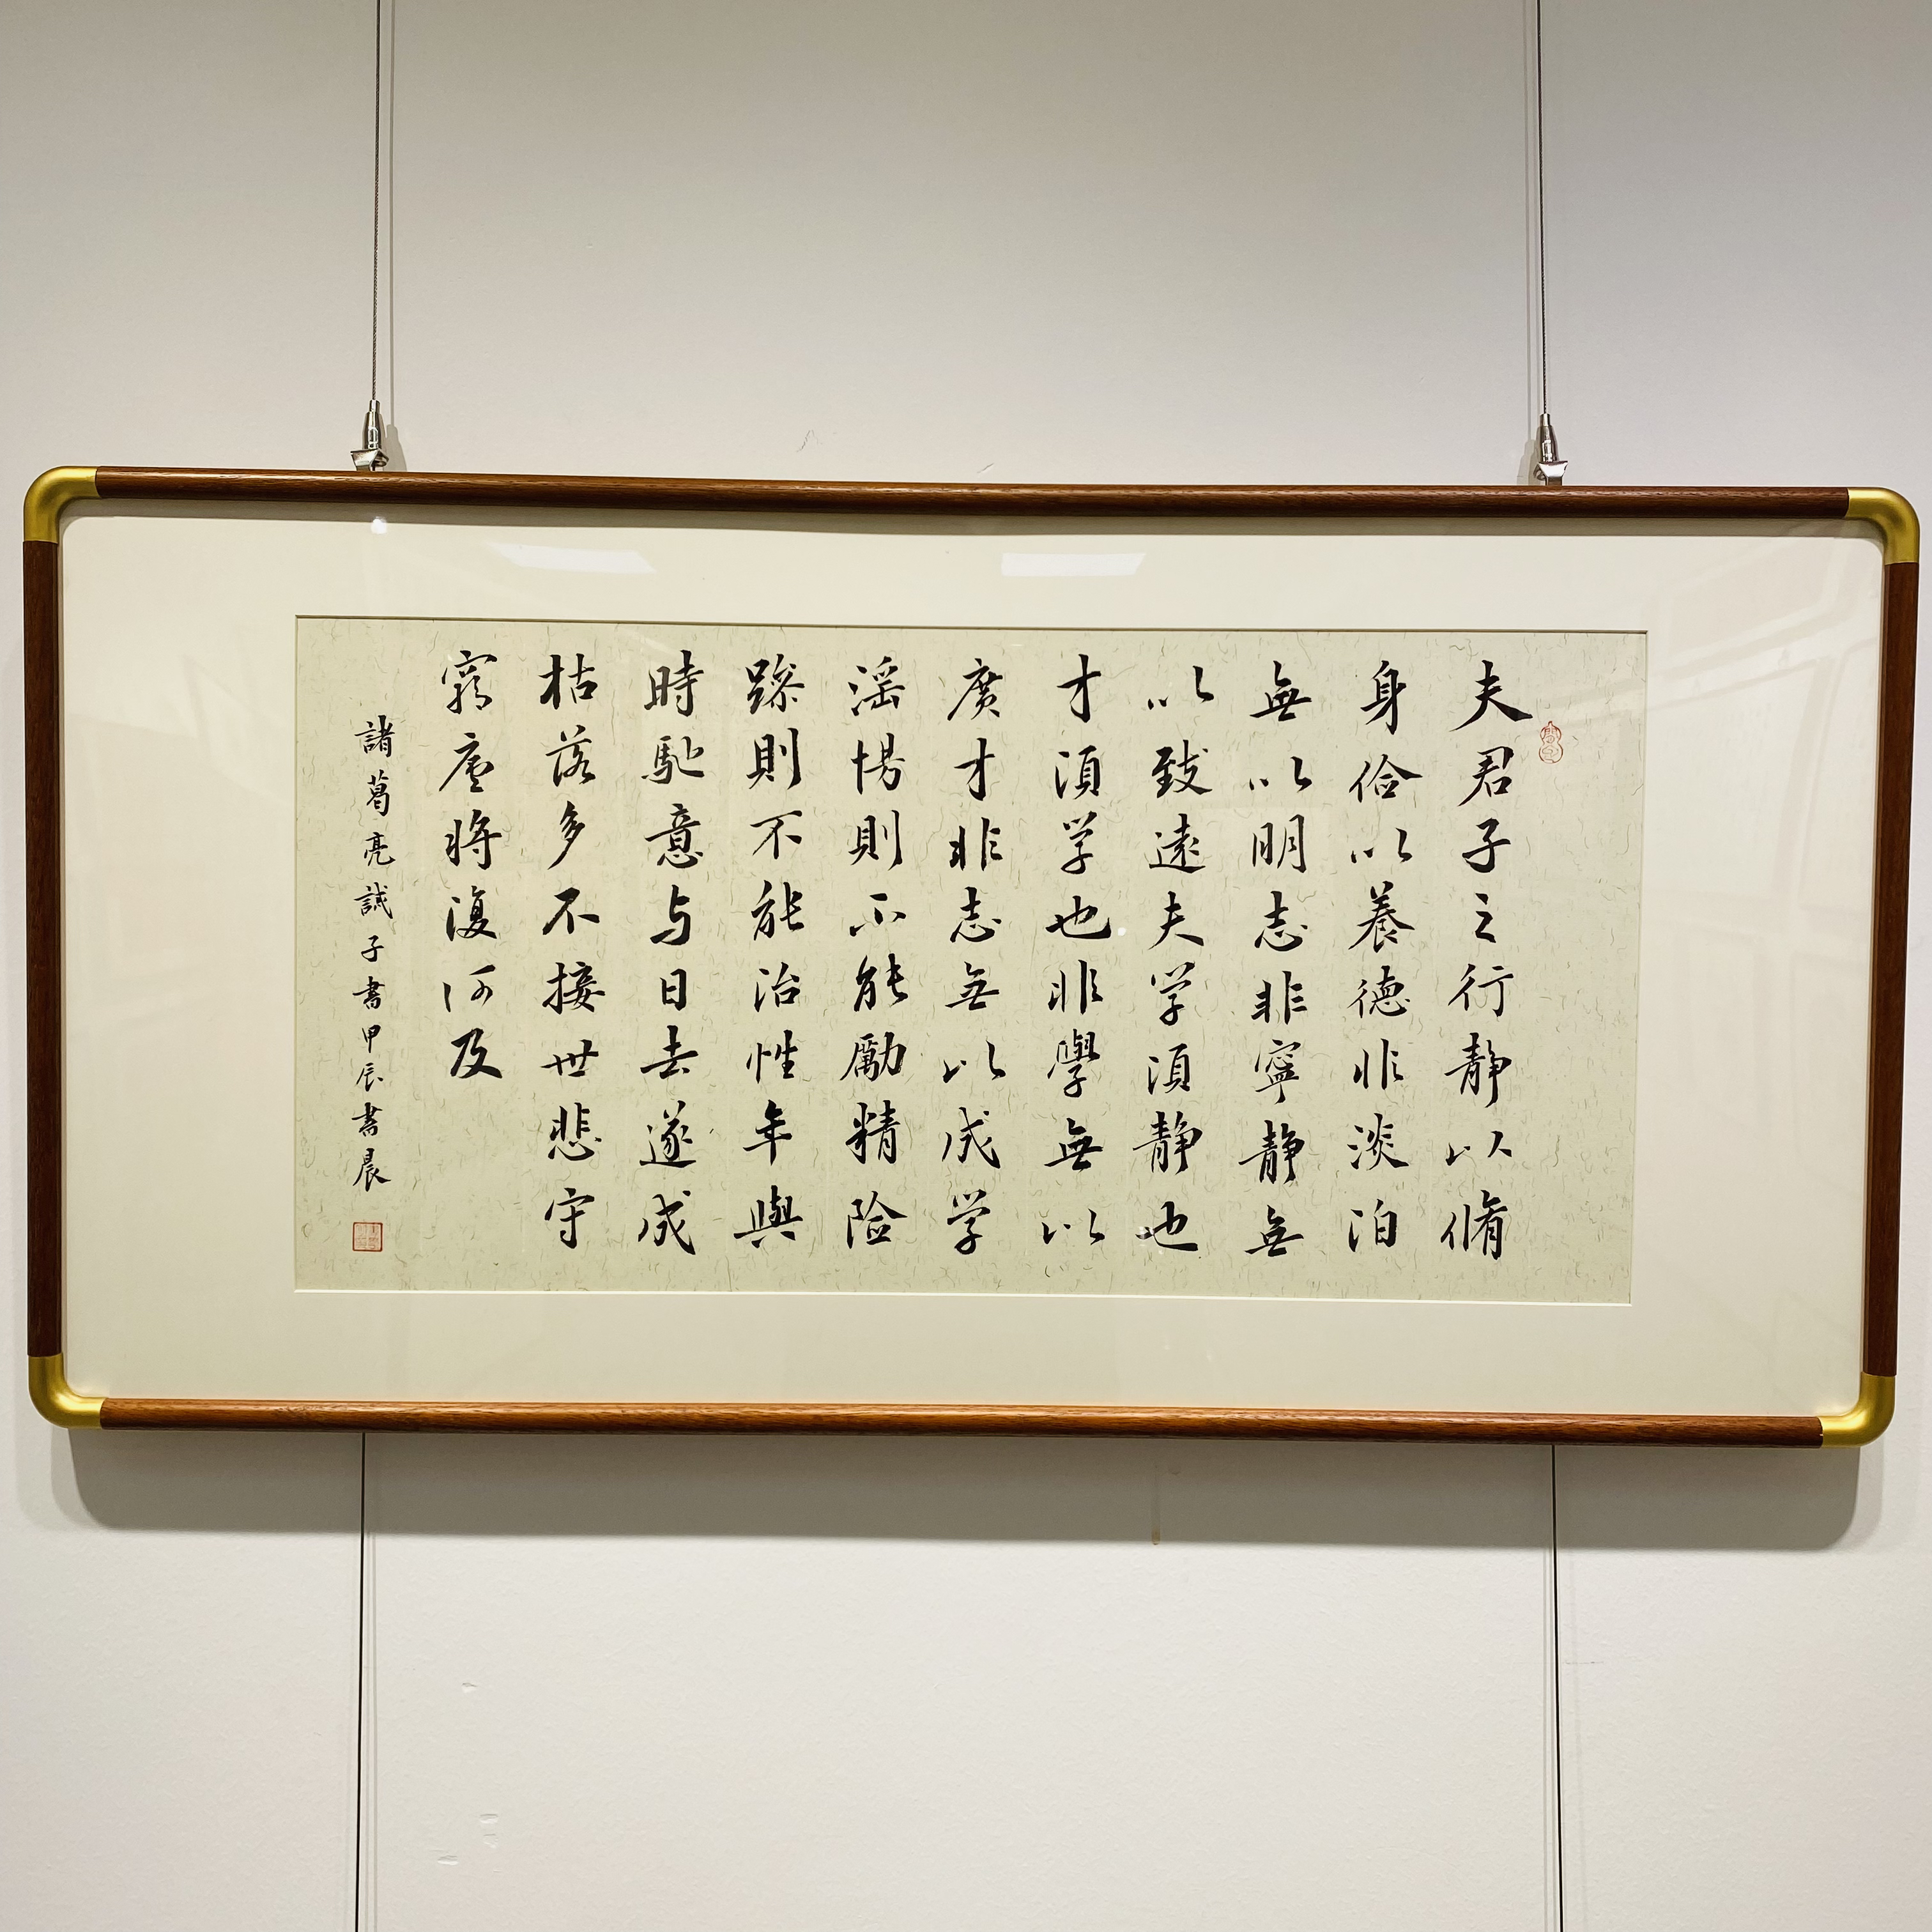 夫君子之行静以脩
身俭以養德非淡泊
無以明志非寧静無
以致遠夫学須静也
才須学也非學無以
廣才非志無以成学
淫慢則不能勵精险
躁則不能治性年與
時馳意与日去遂成
枯落多不接世悲守
窮廬將復何及
諸葛亮誡子書甲辰書晨